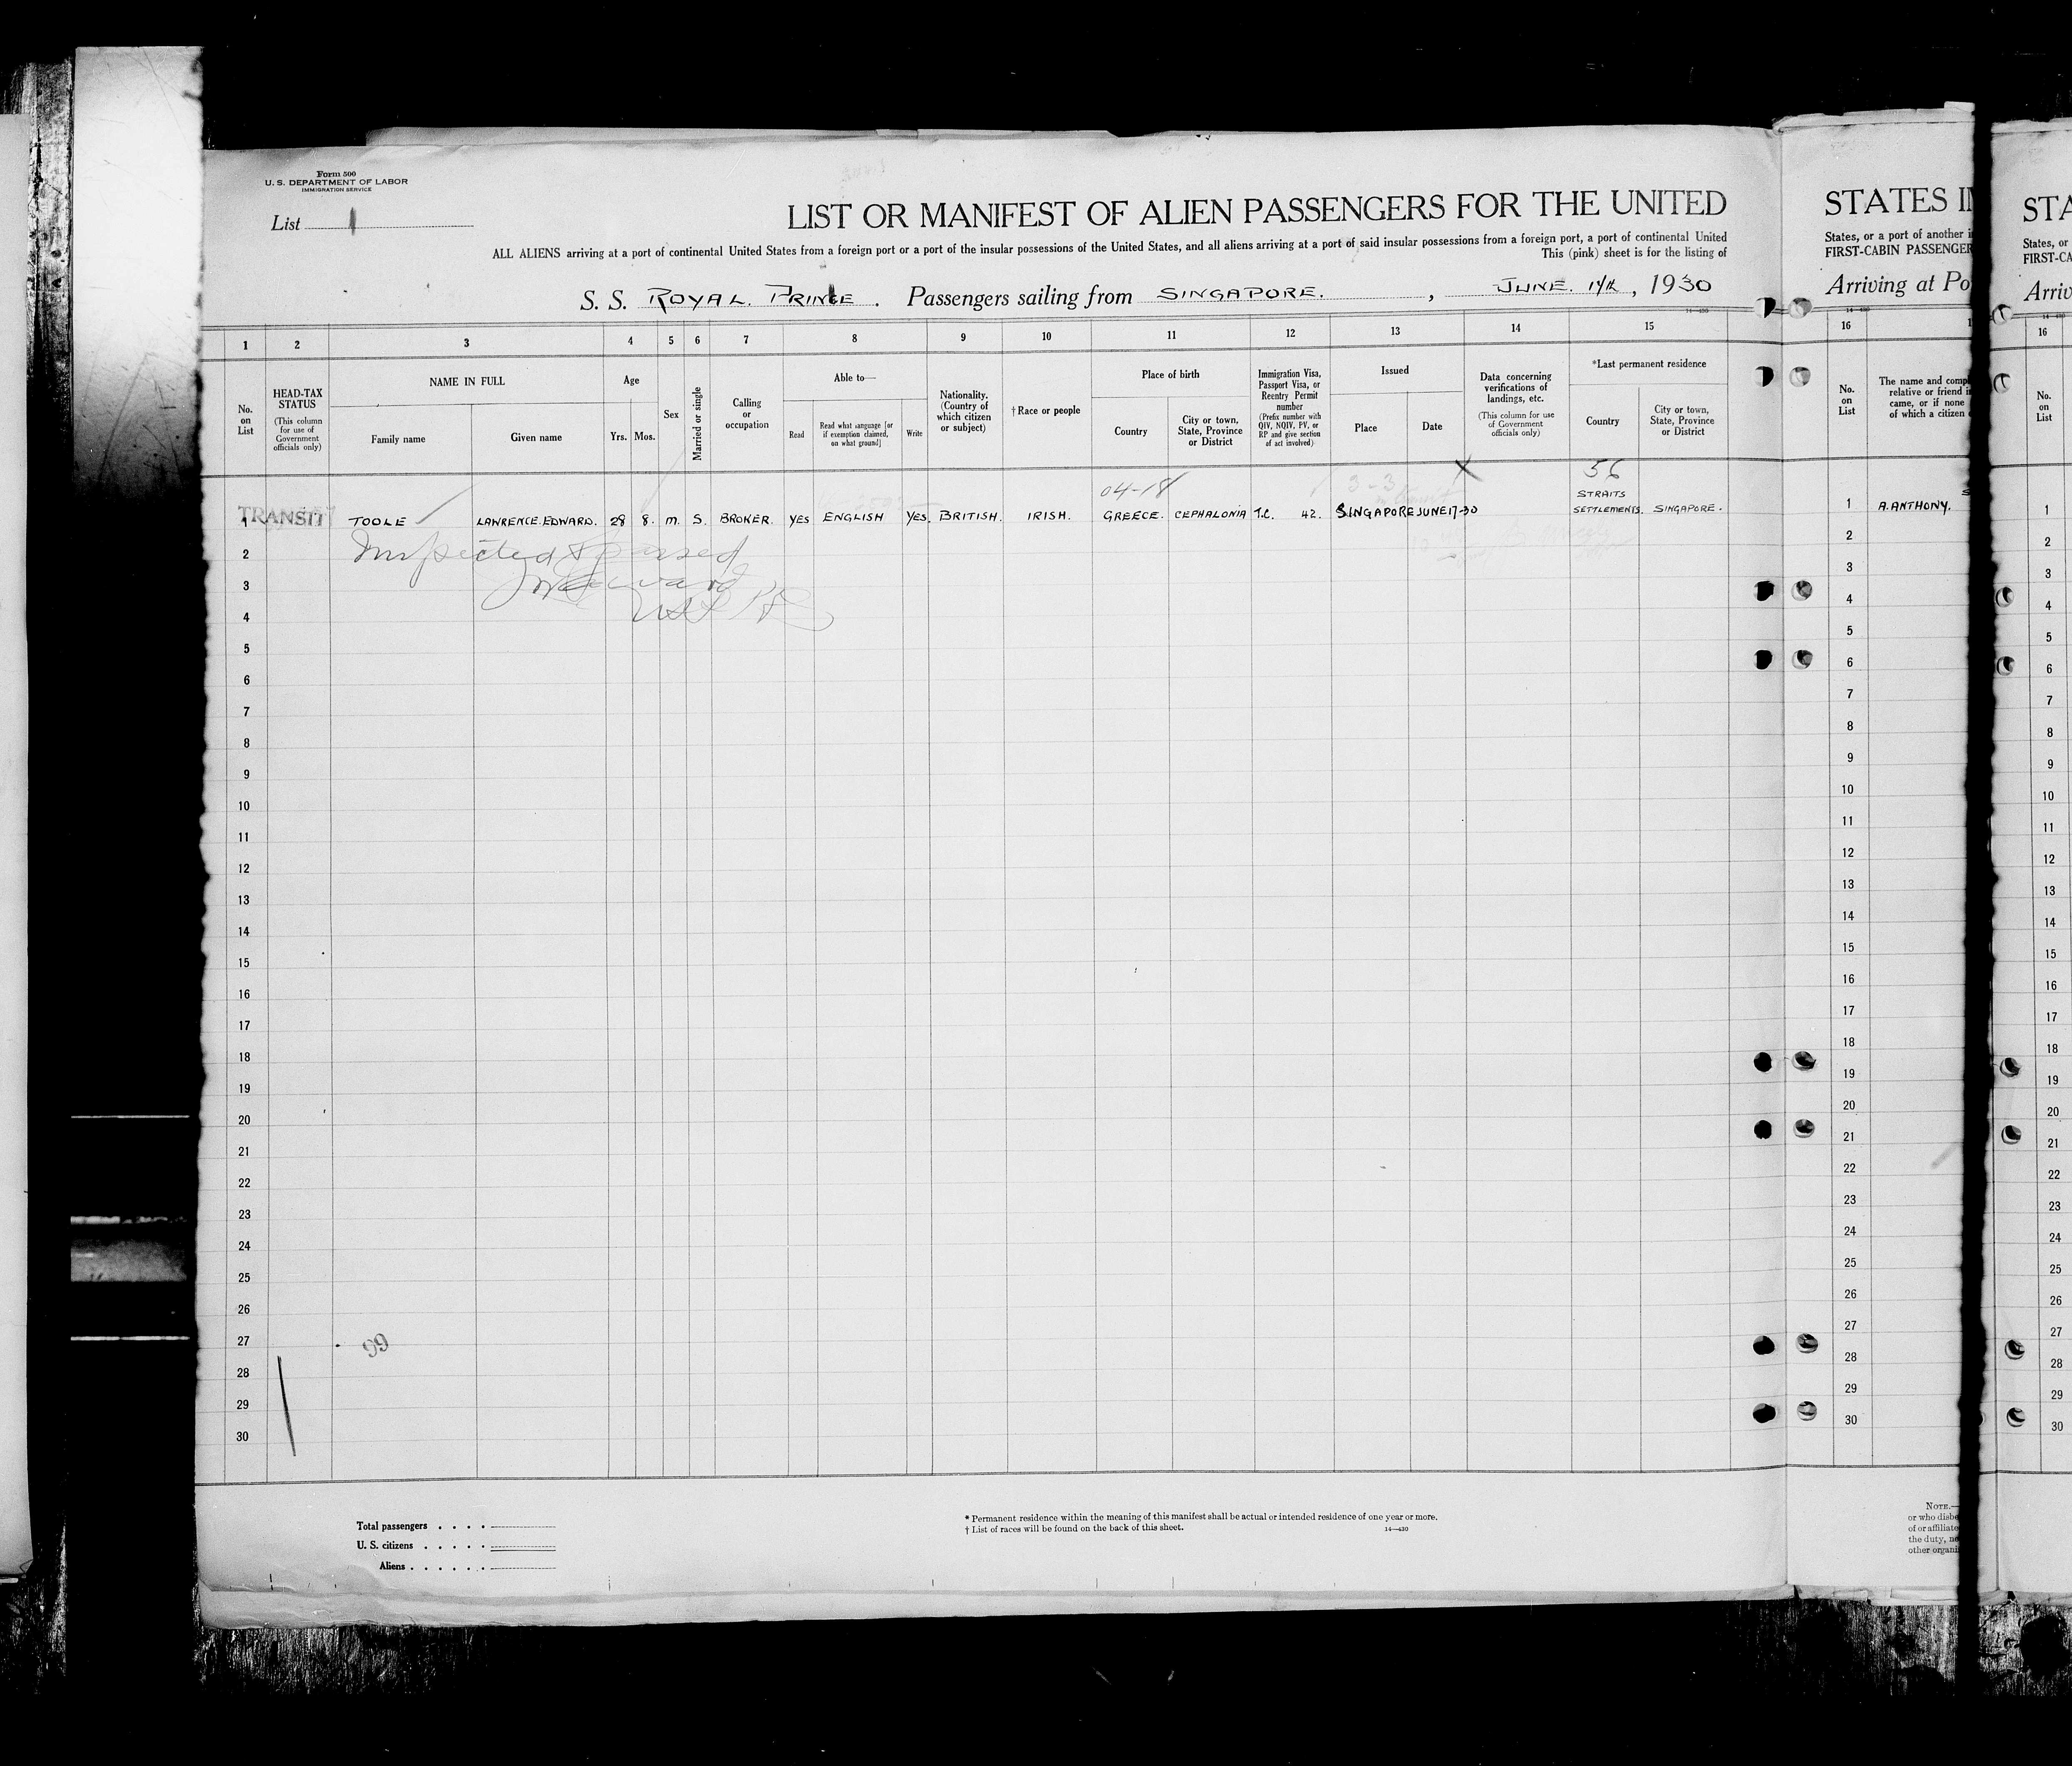 Form 500
U. S. DEPARTMENT OF LABOR
IMMIGRATION SERVICE
List 1
LIST OR MANIFEST OF ALIEN PASSENGERS FOR THE UNITED
ALL ALIENS arriving at a port of continental United States from a foreign port or a port of the insular possessions of the United States, and all aliens arriving at a port of said insular possessions from a foreign port, a port of continental United
This (pink) sheet is for the listing of
S. S. ROYAL. PRINCE. Passengers sailing from SINGAPORE. , JUNE. , 1930
14—430
1 2 3 4 5 6 7 8 9 10 11 12 13 14 15
No. on List
HEAD-TAX STATUS
(This column for use of Government officials only)
NAME IN FULL
Family name
Given name
Age
Yrs. Mos.
Sex
Married or single
Calling or occupation
Able to—
Read
Read what language [or if exemption claimed, on what ground]
Write
Nationality. (Country of which citizen or subject)
† Race or people
Place of birth
Country
City or town, State, Province or District
Immigration Visa, Passport Visa, or Reentry Permit number
(Prefix number with QIV, NQIV, PV, or RP and give section of act involved)
Issued
Place
Date
Data concerning verifications of landings, etc.
(This column for use of Government officials only)
*Last permanent residence
Country
City or town, State, Province or District
04-18
3-3
X
56
TRANSIT
1 TOOLE LAWRENCE.EDWARD. 28 8. M. S. BROKER. YES ENGLISH YES. BRITISH. IRISH. GREECE. CEPHALONIA T.C. 42. SINGAPORE JUNE 17-30 STRAITS SETTLEMENTS. SINGAPORE.
2 Inspected & passed
3
4
5
6
7
8
9
10
11
12
13
14
15
16
17
18
19
20
21
22
23
24
25
26
27 99
28
29
30
Total passengers . . . .
U. S. citizens . . . . .
Aliens . . . . . .
* Permanent residence within the meaning of this manifest shall be actual or intended residence of one year or more.
† List of races will be found on the back of this sheet.
14—430
STATES I
States, or a port of another i
FIRST-CABIN PASSENGER
Arriving at Po
14—430
16
No. on List
The name and comp
relative or friend i
came, or if none
of which a citizen
1 A. ANTHONY.
2
3
4
5
6
7
8
9
10
11
12
13
14
15
16
17
18
19
20
21
22
23
24
25
26
27
28
29
30
NOTE.—
or who disbe
of or affiliate
the duty, ne
other organi
STA
States, or
FIRST-CA
Arriv
16
No. on List
1
2
3
4
5
6
7
8
9
10
11
12
13
14
15
16
17
18
19
20
21
22
23
24
25
26
27
28
29
30